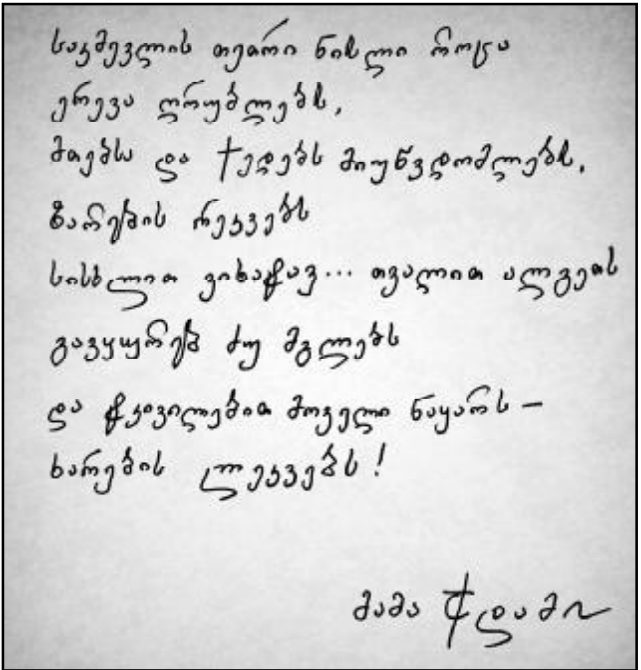 საკმევლის თეთრი ნისლი როცა
ერევა ღრუბლებს,
მთებსა და ქედებს მიუწვდომლებს,
ზარების რეკვებს
სისხლით ვიხატავ... თვალით ალგეთს
გავყურებ ძუ მგლებს
და ტკივილებით მოველი ნაყარს –
ხარების ლეკვებს!
მამა ადამი